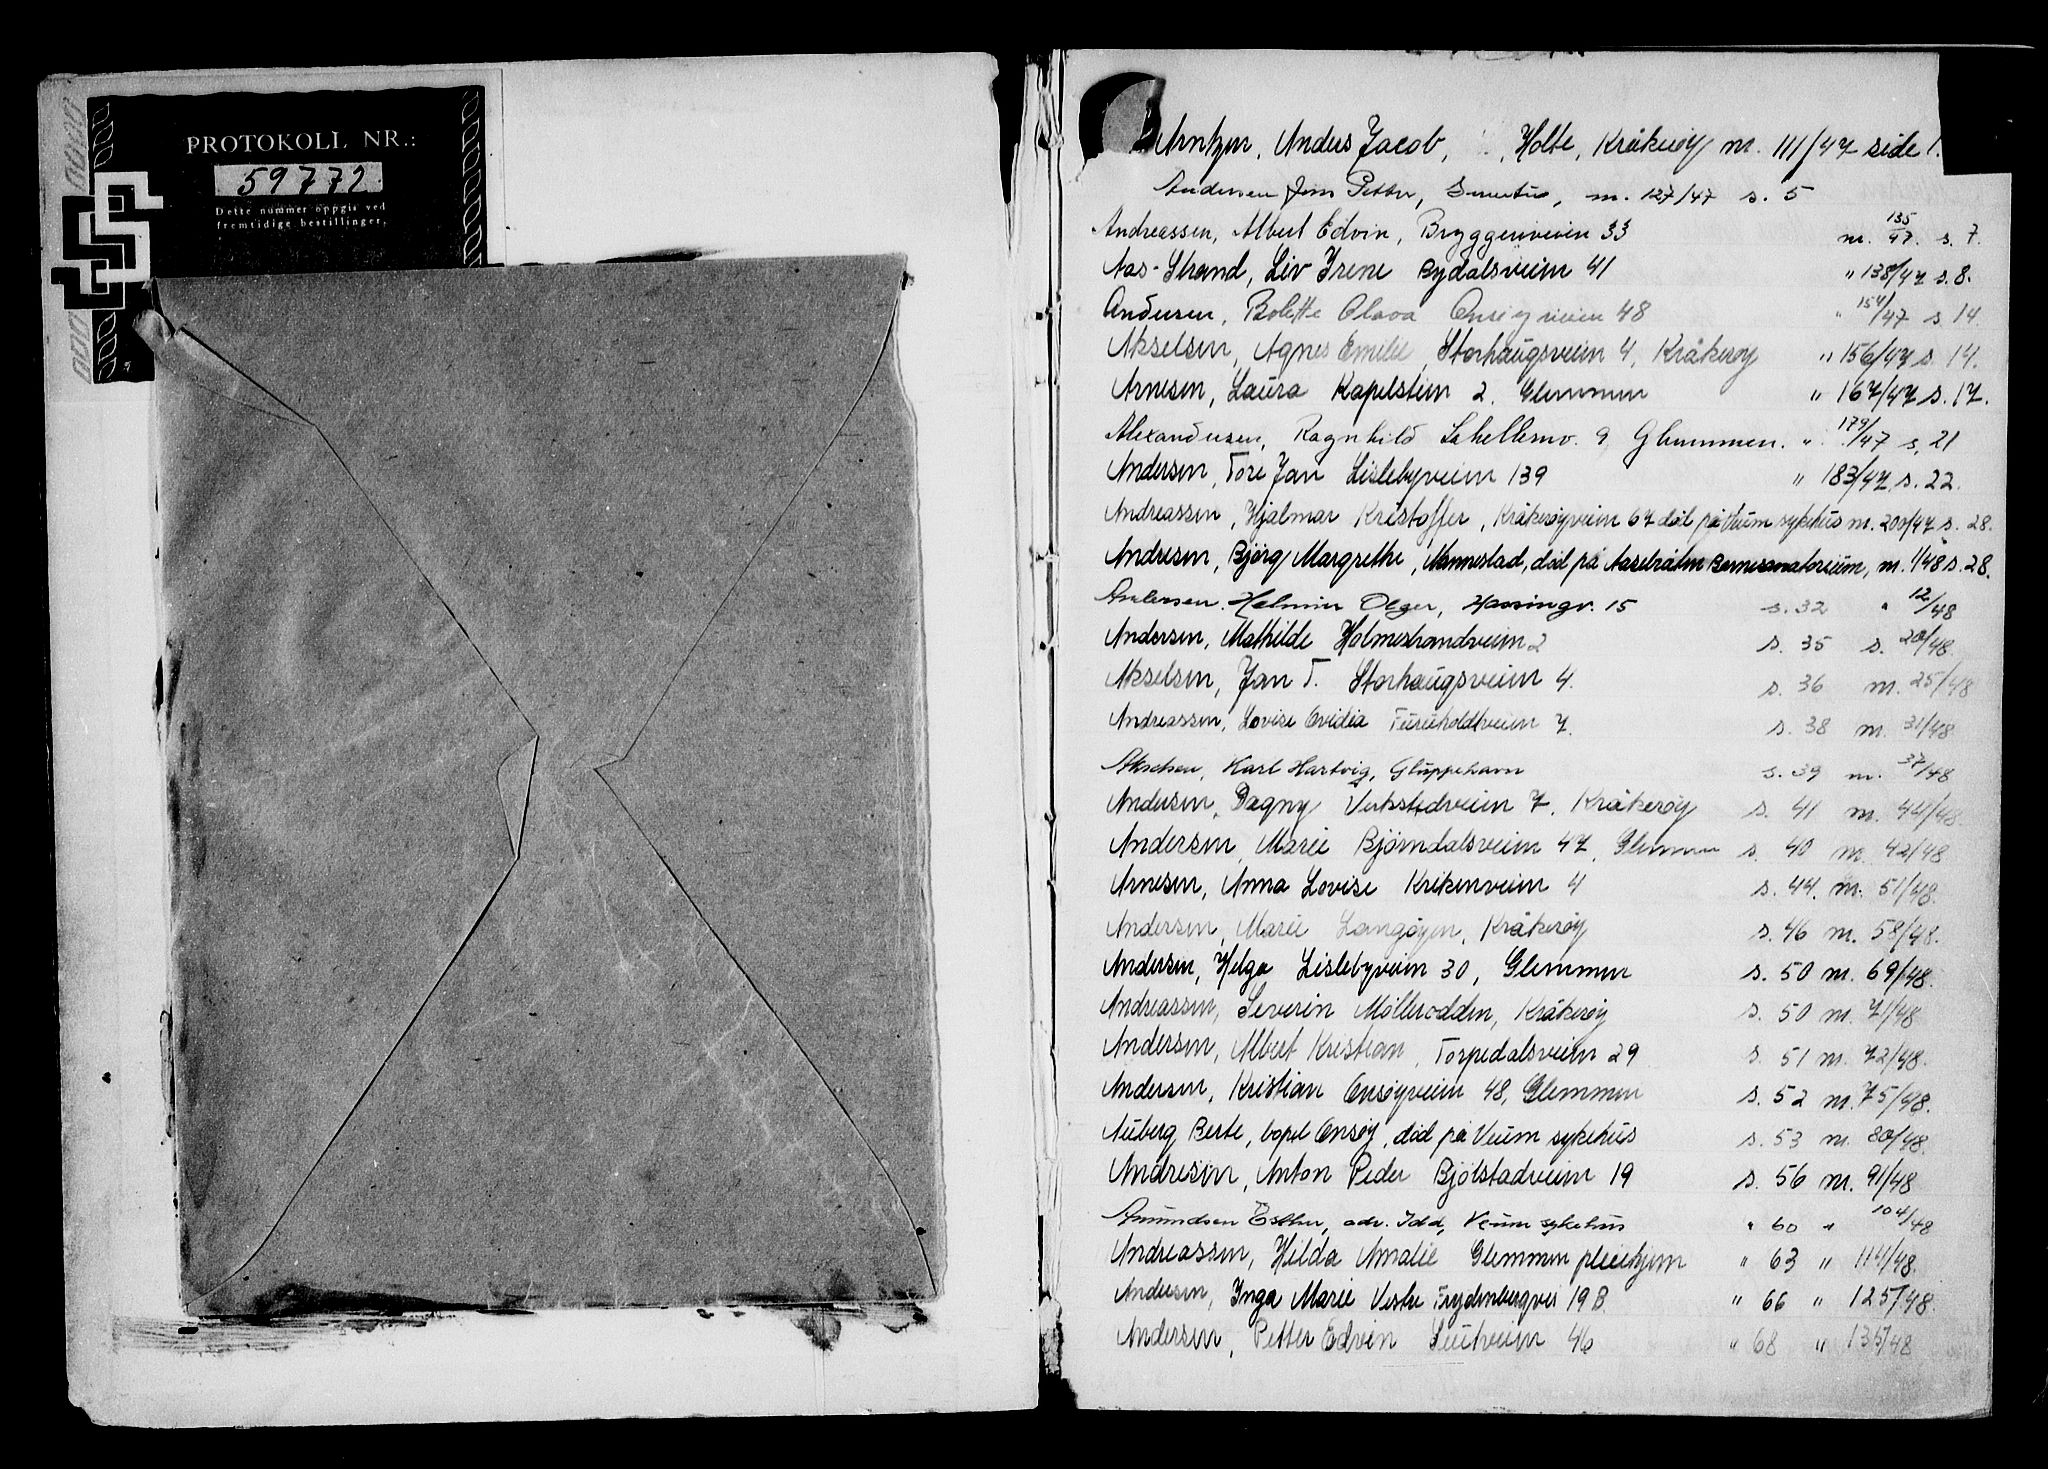 PROTOKOLL NR.:
59772
Dette nummer oppgis ved
fremtidige bestillinger.
Arntzen, Anders Jacob, Holte, Kråkerøy m. 111/47 side 1.
Andersen Jens Petter, m. 127/47 s. 5
Andreassen, Albert Edvin, Bryggeriveien 33 m. 135/47. s. 7.
Aas-Strand, Liv Irene Rydalsveien 41 " 138/47 s. 8.
Andersen, Bolette Olava Onsøyveien 48 " 154/47 s. 14.
Akselsen, Agnes Emilie, Storhaugsveien 4, Kråkerøy " 156/47 s. 14.
Arnesen, Laura Kapelsteen 2. Glemmen " 167/47 s. 17.
Alexandersen, Ragnhild 9 Glemmen. " 179/47 s. 21
Andersen, Tore Jan Lislebyveien 139 " 183/47 s. 22.
Andreassen, Hjalmar Kristoffer, Kråkerøyveien 67 død på Veum sykehus m. 200/47 s. 28.
Andresen, Bjørg Margrethe, Mannestad, død på Barnesanatorium, m. 1/48 s. 28.
Andersen. Holger, 15 s. 32 " 12/48
Andersen, Mathilde Holmestrandveien 2 s. 35 s. 20/48
Akselsen, Jan T. Storhaugsveien 4. s. 36 m. 25/48
Andreassen, Lovise Ovidia Furuholdtveien 7. s. 38 m. 31/48
Akselsen, Karl Hartvig, Gluppehavn s. 39 m. 37/48
Andersen, Dagny Verkstedveien 7, Kråkerøy s. 41 m. 44/48.
Andersen, Marie Bjørndalsveien 47, Glemmen s. 40 m. 42/48
Arnesen, Anna Lovise Krikenveien 4 s. 44. m. 51/48.
Andersen, Marie Langøyen, Kråkerøy s. 46 m. 58/48.
Andersen, Helga Lislebyveien 30, Glemmen s. 50 m. 69/48.
Andreassen, Severin Mølleodden, Kråkerøy s. 50 m. 71/48
Andersen, Albert Kristian, Torpedalsveien 29 s. 51 m. 72/48.
Andersen, Kristian Onsøyveien 48, Glemmen s. 52 m. 75/48.
Auberg, Berte, bopel Onsøy, død på Veum sykehus s. 53 m. 80/48.
Andresen, Anton Peder Bjølstadveien 19 s. 56 m. 91/48
Amundsen Esther, adr. Idd, Veum sykehus " 60 " 104/48
Andreassen, Hilda Amalie Glemmen pleiehjem " 63 " 114/48.
Andersen, Inga Marie Vestre Frydenbergvei 19 B. " 66 " 125/48.
Andersen, Petter Edvin Leutveien 46 " 68 " 135/48